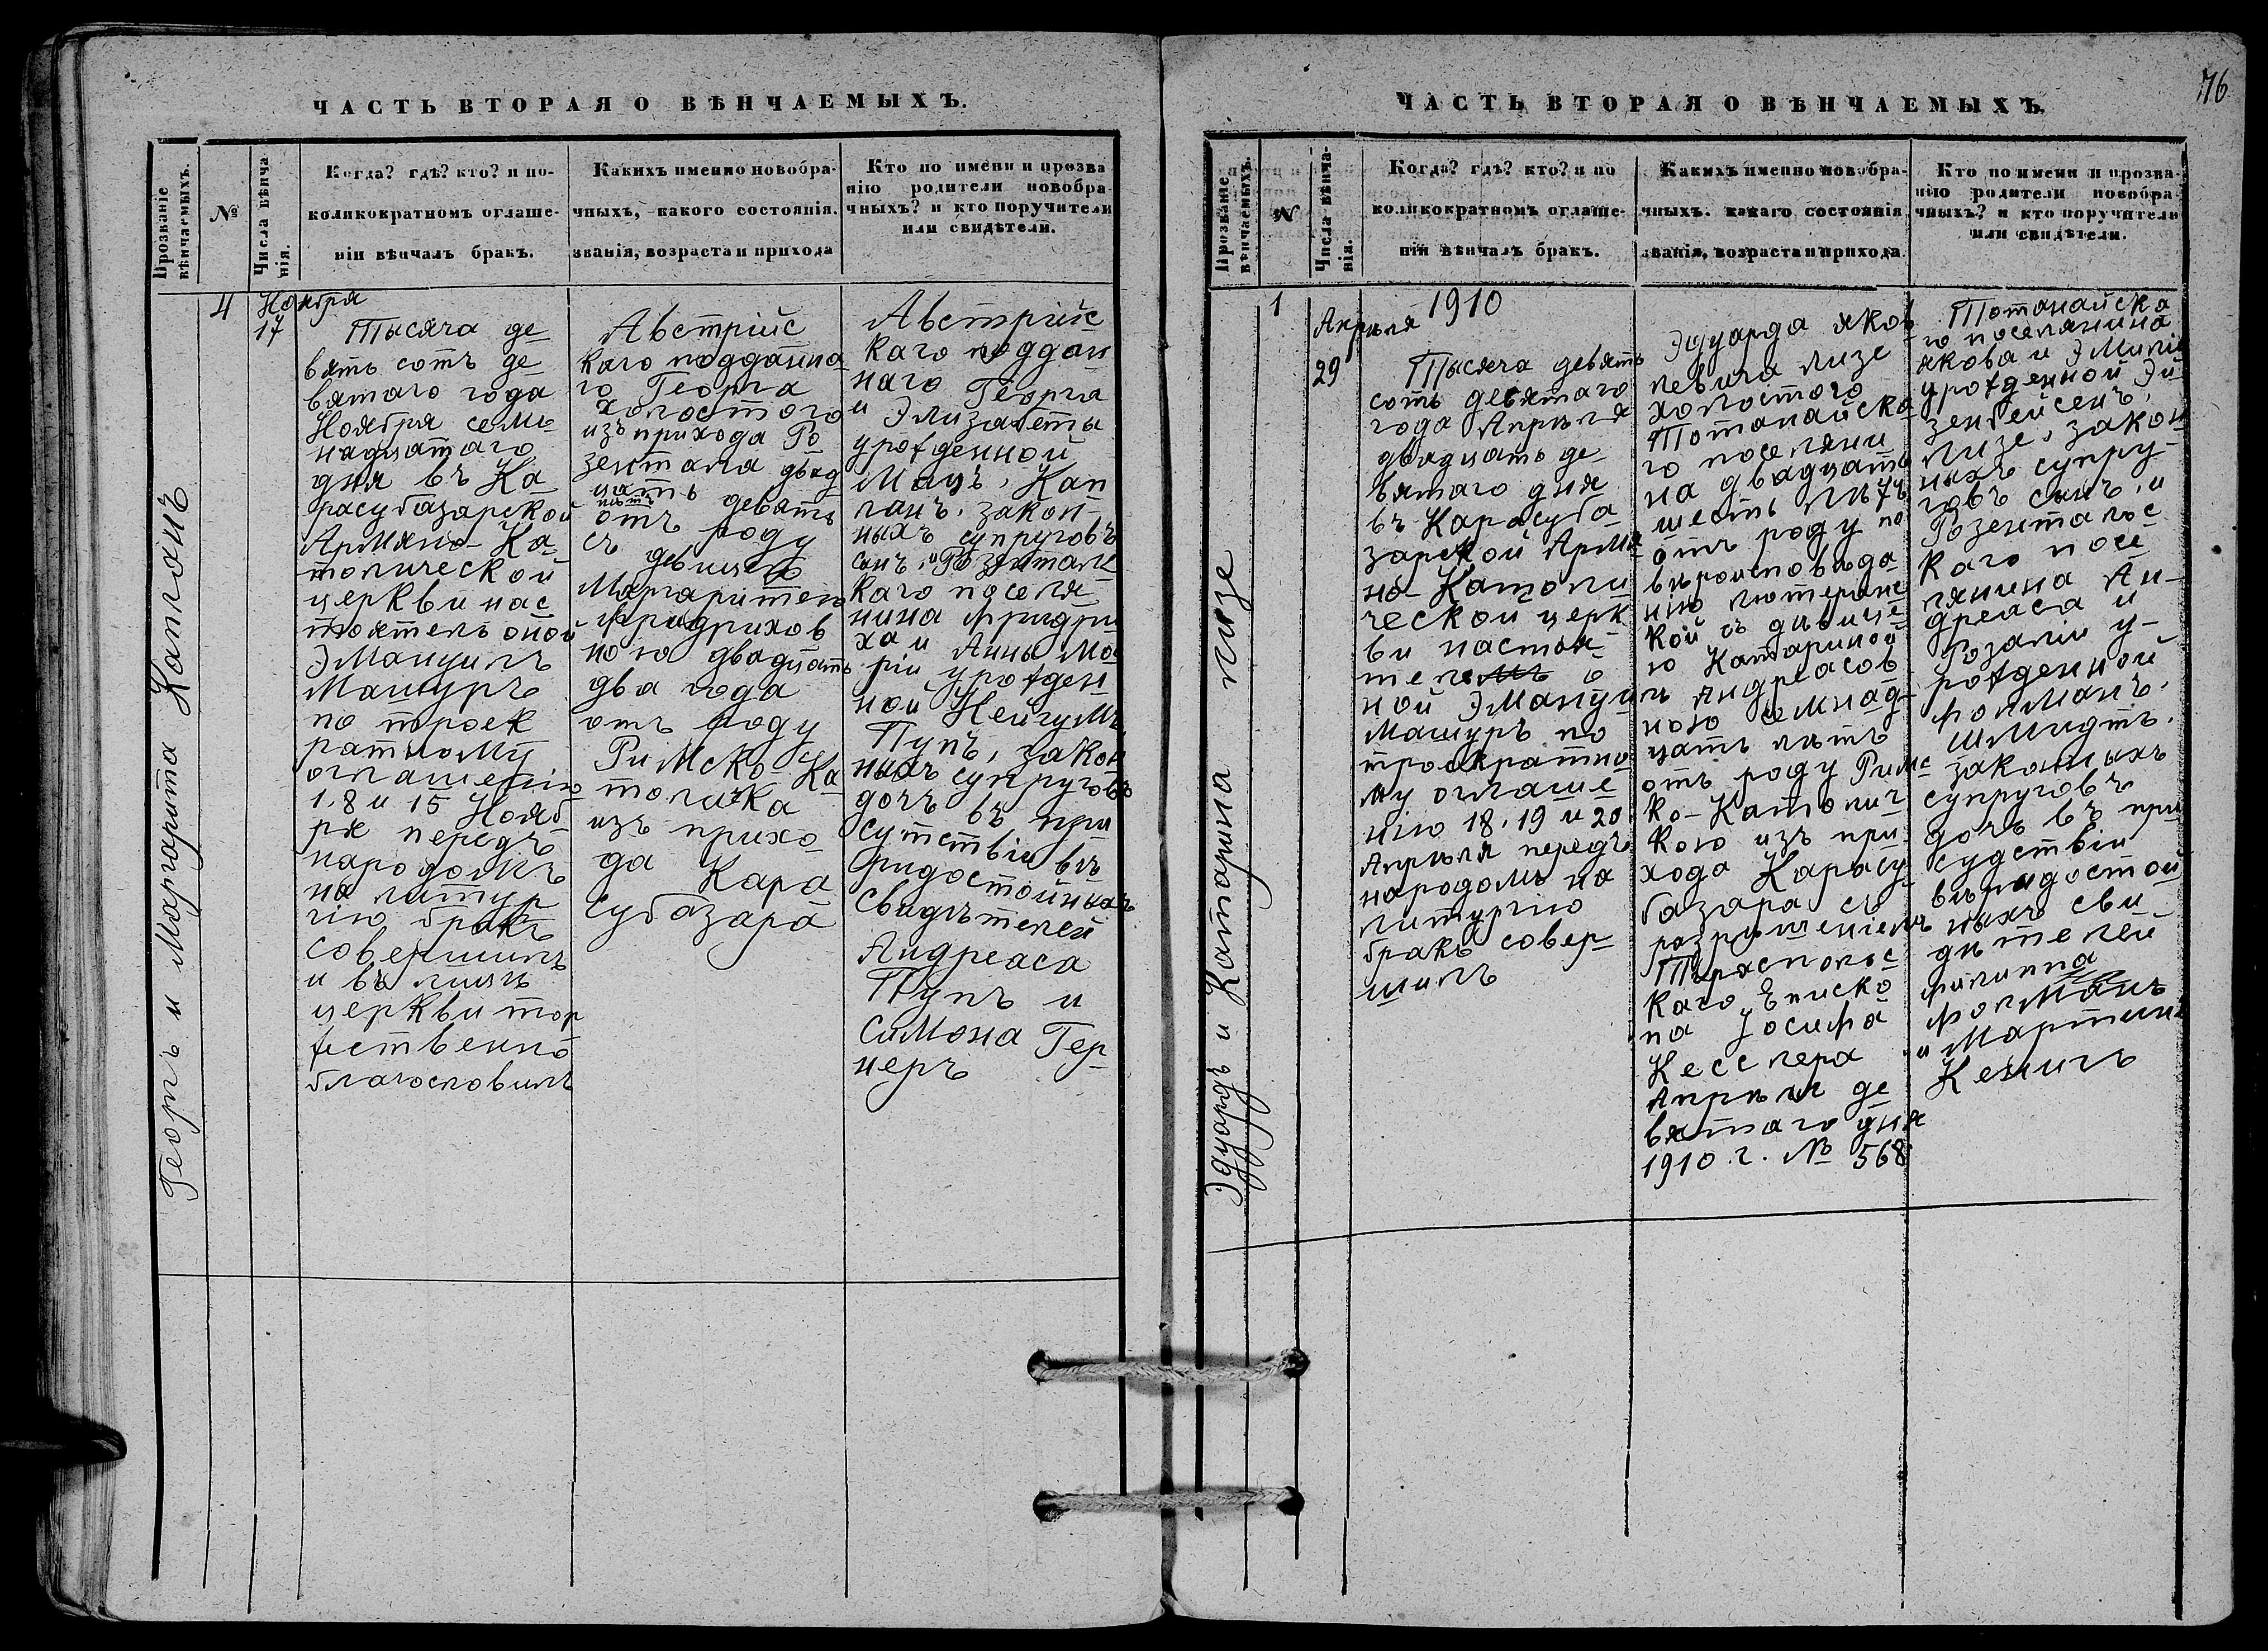 ЧАСТЬ ВТОРАЯ О ВѢНЧАЕМЫХЪ.
Прозваніе вѣнчаемыхъ.
№
Числа вѣнча
нія.
Когда? гдѣ? кто? и по-
коликократномъ оглаше-
ніи вѣнчалъ бракъ.
Какихъ именно новобра-
чныхъ, какого состоянія.
званія, возраста и прихода
Кто по имени и прозва
нію родители новобра-
чныхъ? и кто поручители
или свидѣтели.
Георгъ и Маргарита Капланъ
4
Ноября
17
Тысяча де
вять сотъ де
вятаго года
Ноября семь
надцатаго
дня въ Ка
расубазарской
Армяно-Ка
толической
церкви нас
тоятель оной
Эмануилъ
Машуръ
по троек
ратному
оглашенію
1. 8 и 15 Нояб
ря передъ
народомъ
на литур
гію бракъ
совершилъ
и въ лицѣ
церкви тор
жественно
благословилъ
Австрійс
каго подданна
го Георга
холостого
изъ прихода Ро
зенталя двад
цать девять
лѣтъ
отъ роду
съ девицею
Маргаритею
Фридрихов
ною двадцать
два года
отъ роду
Римско-Ка
толичка
изъ прихо
да Кара
субазара
Австрійс
каго поддан
наго Георга
и Элизабеты
урожденной
Мацъ, Кап
ланъ, закон-
ныхъ супруговъ
сынъ, и Розентальс
каго поселя
нина Фридри
ха и Анны Ма
ріи урожден
ной Нейгумъ,
Пупъ, закон
ныхъ супруговъ
дочъ въ при
сутствіи вѣ
ридостойныхъ
Свидѣтелей
Андреаса
Пупъ и
Симона Гер
неръ
76
ЧАСТЬ ВТОРАЯ О ВѢНЧАЕМЫХЪ.
Прозваніе
вѣнчаемыхъ.
№
Числа вѣнча-
нія.
Когда? гдѣ? кто? и по
коликократномъ оглаше-
ніи вѣнчалъ бракъ.
Какихъ именно новобра-
чныхъ. какаго состоянія
званія, возраста и прихода.
Кто по имени и прозва-
нію родители новобра-
чныхъ? и кто поручители
или свидѣтели.
Эдуардъ и Катарина Лизе
1
Апрѣля
29
1910
Тысяча девять
сотъ девятаго
года Апрѣля
двадцать де
вятаго дня
въ Карасуба
зарской Армя
но-Католи
ческой церк
ви настоя-
тель о
ной Эмануилъ
Машуръ по
троекратно
му оглаше
нію 18. 19 и 20
Апрѣля передъ
народомъ на
литургію
бракъ совер
шилъ
Эдуарда Яков
левича Лизе
холостого
Тотанайска
го поселяни
на двадцать
шесть лѣтъ
отъ роду по
вѣроисповѣда
нію лютеранс
кой съ дѣвице
ю Катариной
Андреасов
ною семнад-
цать лѣтъ
отъ роду Римс
ко-Католич
кою изъ при-
хода Карасу
базара съ
разрѣшеніемъ
Тираспольс
каго Еписко
па Іосифа
Кесслера
Апрѣля де
вятаго дня
1910. г. № 568
Тотанайска
го поселянина
Якова и Эмилі
урожденной Эй
зенбейсенъ,
Лизе, закон
ныхъ супру
говъ сынъ, и
Розентальс
каго посе
лянина Ан-
дреаса и
Розаліи у-
рожденной
Фолманъ,
Шмидтъ,
законныхъ
супруговъ
дочъ въ при
судствіи
вѣридостой
ныхъ сви
дѣтелей
Филиппа
Фолманъ
и Мартина
Кенигъ